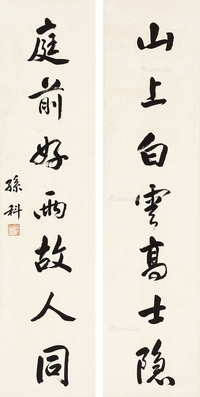 山上白雲高士隐
庭前好雨故人同
孫科